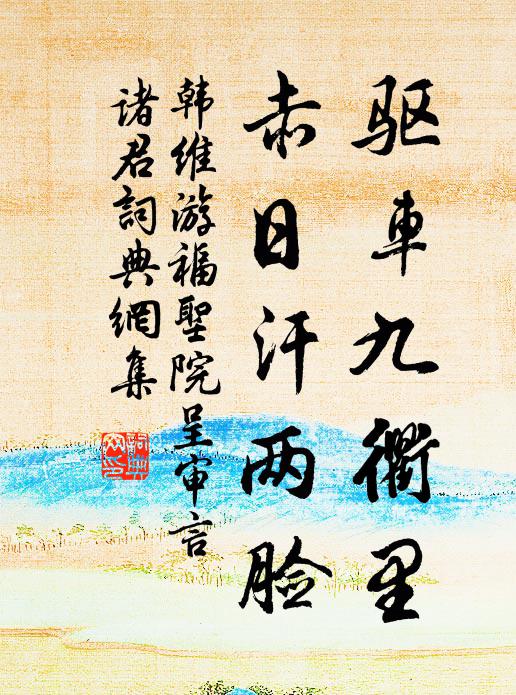 驱車九衢里
赤日汗两脸
韩维游福聖院呈审言
诸君詞典網集